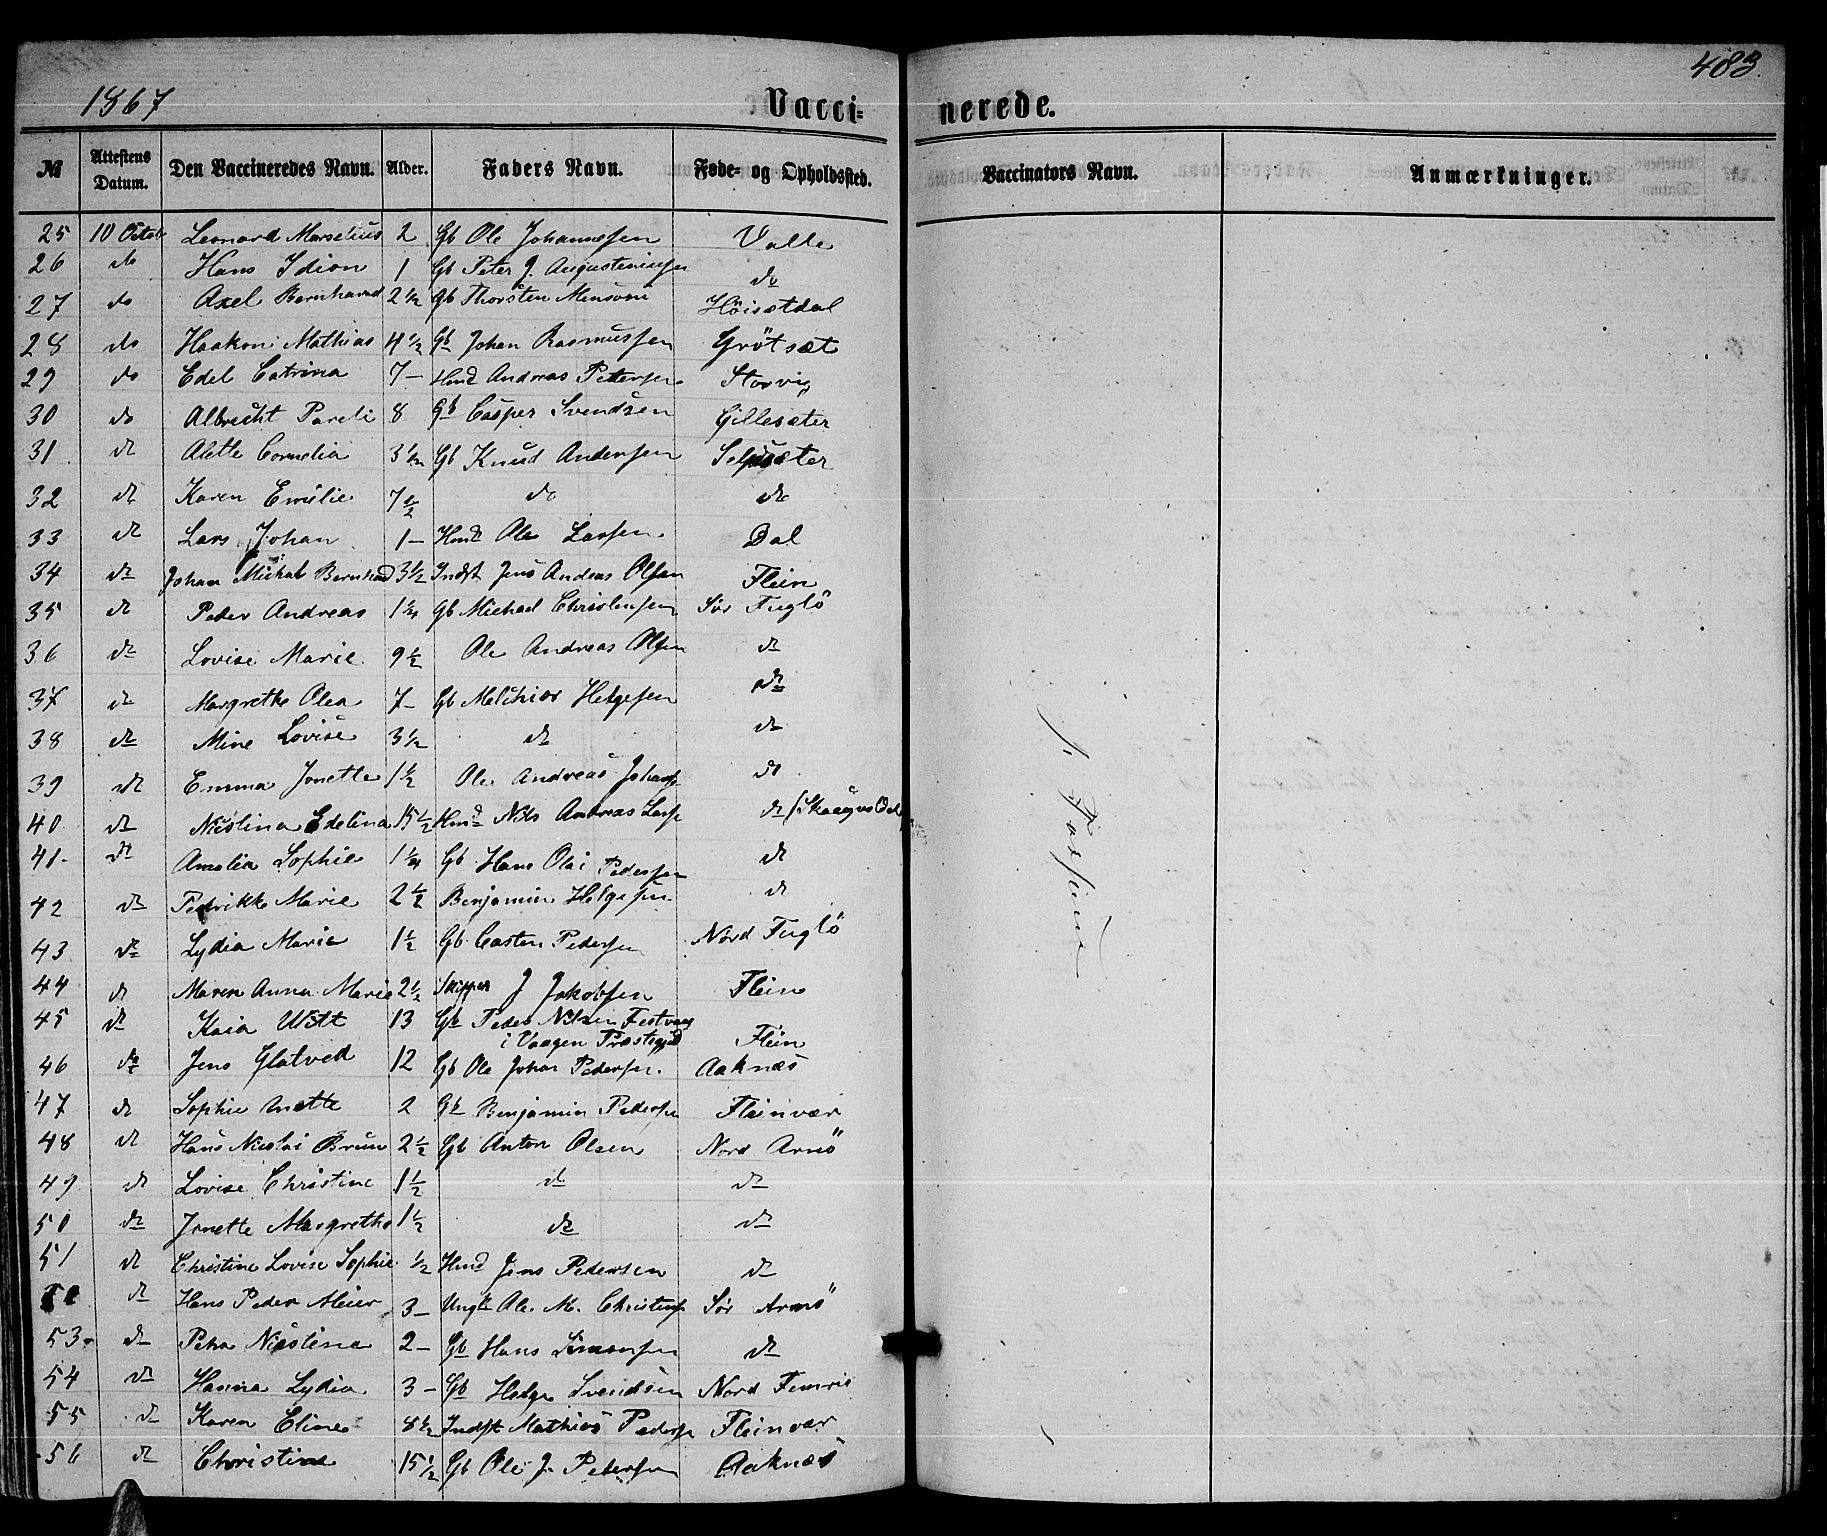 1867
Vacci-
nerede.
483.
№ Attestens Datum. Den Vaccineredes Navn. Alder. Faders Navn. Føde- og Opholdssted. Vaccinators Navn. Anmærkninger.
25 10 Octob Leonard Marselius 2 Gb Ole Johannesen Valle
26 do Hans Idion 1 Gb Peter J. Augustinusen do
27 do Axel Bernhard 2 1/2 Gb Thorsten Monsøni Höisetdal
28 do Haakon Mathias 4 1/2 Gb Johan Rasmussen Grötsæt
29 do Edel Catrina 7- Hmd Andreas Pettersen Storvig
30 do Albrecht Pareli 8 Gb Casper Svendsen Gillesæter
31 do Alette Cornelia 3 1/2 Gb Knud Andersen Seljesæter
32 do Karen Emilie 7 1/2 do do
33 do Lars Johan 1- Hmd Ole Larsen. Dal
34 do Johan Mikal Bernhad 3 1/2 Indst Jens Andeas Olsen Flein
35 do Peder Andreas 1 1/4 Gb Michael Christensen Sör Fuglö
36 do Lovise Marie 9 1/2 Ole Andreas Olsen do
37 do Margrethe Olea 7- Gb Melchior Helgesen do
38 do Mine Lovise 3 1/2 do do
39 do Emma Jonette 1 1/2 Ole Andreas Johans do
40 do Nicolina Edelina 15 1/2 Hmd Nils Andreas Lars do (Skaugvoldal
41- do Amalia Sophie 1 1/4 Gb Hans Olai Pedersen do
42 do Pedrikke Marie 2 1/2 Benjamin Helgesen do
43 do Lydia Marie 1 1/2 Gb. Casten Pedersen Nord Fuglö
44 do Maren Anna Marie 2 1/2 Skipper J Jakobsen Flein
45 do Kaia Witt 13 Gb Peder Nilsen Festvaag
i Vaagen Præstegjæld Flein
46 do Jens Glatved 12 Gb Ole Johan Pedersen. Aaknæs
47 do Sophie Anette 2 Gb Benjamin Pedersen Fleinvær
48 do Hans Nicolai Bruun 2 1/2 Gb Anton Olsen Nord Arnö
49 do Lovise Christine 1 1/2 do do
50 do Jonette Margrethe 1 1/2 do do
51 do Christine Lovise Sophie 1/2 Hmd Jens Pedersen do
do Hans Peder Meier 3- Ungk Ole M. Christens Sör Arnö
53- do Petra Nicolina 2- Gb Hans Simonsen do
54 do Hanna Lydia 3- Gb Helge Svendsen Nord Femris
55 do Karen Eline 8 1/2 Indst Mathias Peders Fleinvær
56 do Christine 15 1/2 Gb Ole J. Petersen Aaknæs